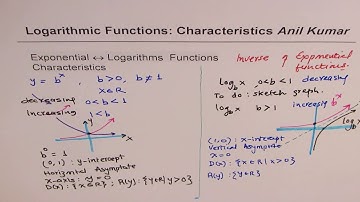 Logarithmic Functions: Characteristics Anil Kumar
Exponential ↔ Logarithms Functions
Characteristics
y = b^x, b>0, b≠1
x∈R
decreasing 0<b<1
Increasing 1<b
y
x
b^0 = 1
(0,1) : y-intercept
Horizontal Asymptote
x-axis: y=0
D(x): {x∈R}; R(y): {y∈R | y>0}
Inverse of Exponential
functions.
log_b x 0<b<1 decreasing
To do: sketch graph.
log_b x b>1 increasing
b^x
log_b x
(1,0) : x-intercept
Vertical Asymptote
x=0
D(x): {x∈R | x>0}
R(y): {y∈R}